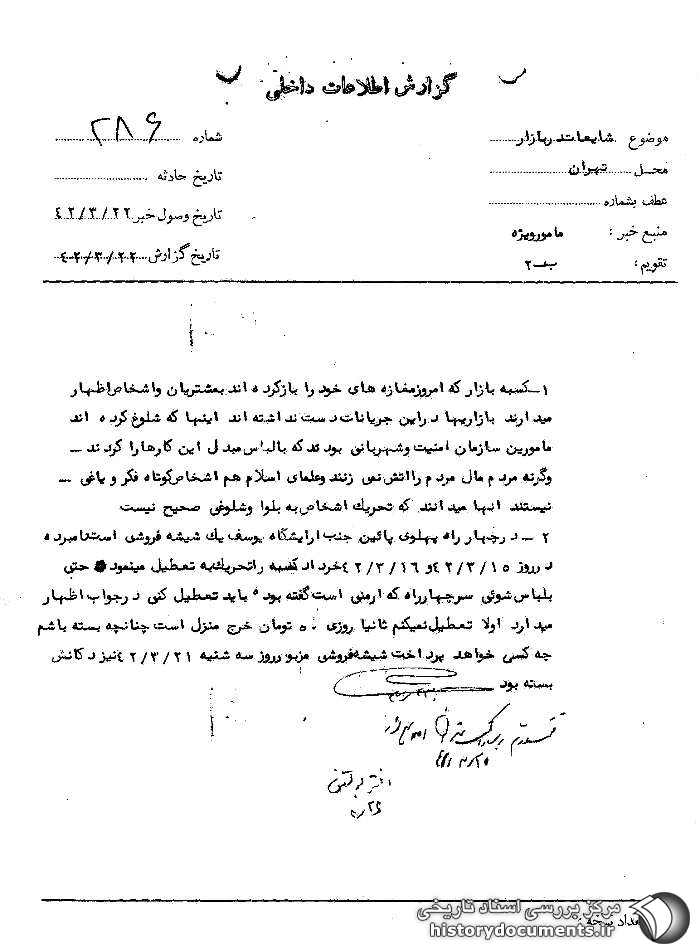 گزارش اطلاعات داخلی
موضوع شایعات در بازار
شماره ۲۸۶
محل تهران
تاریخ حادثه
عطف بشماره
تاریخ وصول خبر ۴۲/۳/۲۲
منبع خبر : مامور ویژه
تاریخ گزارش ۴۰۲/۳/۰۲۲
تقویم : ب-۲
۱- کسبه بازار که امروز مغازه های خود را باز کرده اند بمشتریان واشخاص اظهار
میدارند بازاریها در این جریانات دست نداشته اند اینها که شلوغ کرده اند
مامورین سازمان امنیت وشهربانی بودند که بالباس مبدل این کارها را کردند -
وگرنه مردم مال مردم را اتش نمی زنند وعلمای اسلام هم اشخاص کوتاه فکر و یاغی -
نیستند انها میدانند که تحریک اشخاص به بلوا وشلوغی صحیح نیست
۲ - در چهار راه پهلوی پائین جنب ارایشگاه یوسف یک شیشه فروشی است نامبرده
در روز ۴۲/۳/۱۵ و ۴۲/۳/۱۶ خرداد کسبه را تحریک به تعطیل مینمود حتی
بلباس شوئی سرچهارراه که ارمنی است گفته بود باید تعطیل کنی در جواب اظهار
میدارد اولا تعطیل نمیکنم ثانیا روزی ۵۰ تومان خرج منزل است چنانچه بسته باشم
چه کسی خواهد پرداخت شیشه فروشی مزبور روز سه شنبه ۴۲/۳/۲۱ نیز دکانش
بسته بود
مرکز بررسی اسناد تاریخی
historydocuments.ir
تعداد نسخه :